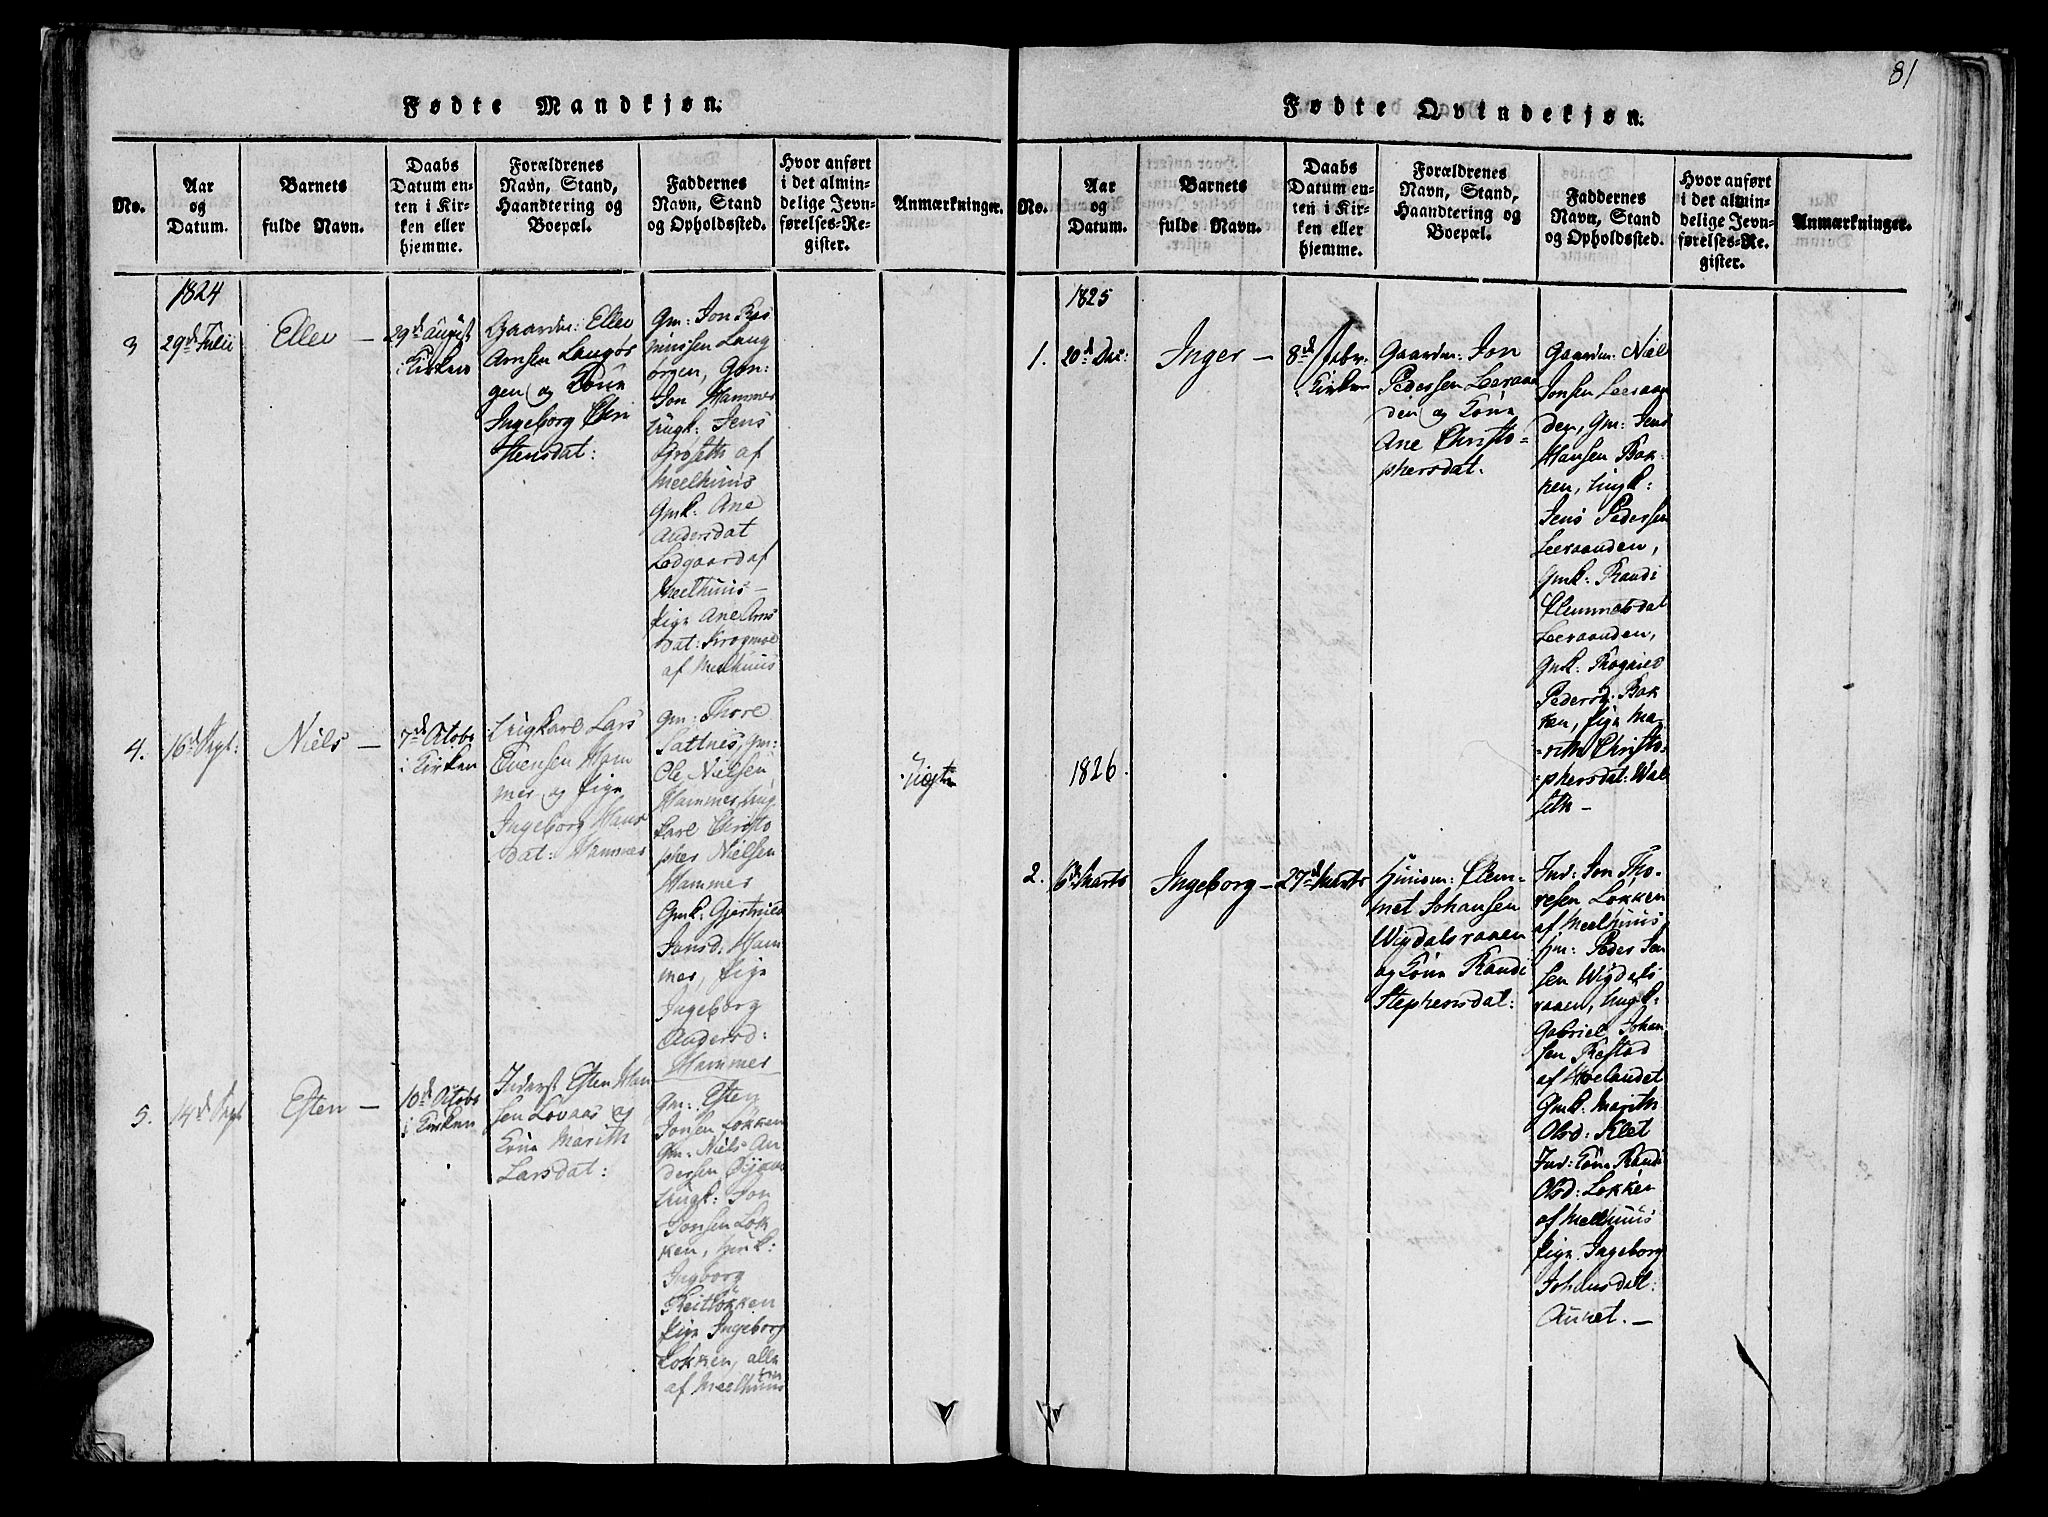 81
Fødte Mandkjøn.
No.
Aar
og
Datum.
Barnets
fulde Navn.
Daabs
Datum en-
ten i Kir-
ken eller
hjemme.
Forældrenes
Navn, Stand,
Haandtering og
Boepæl.
Faddernes
Navn, Stand
og Opholdssted.
Hvor anført
i det almin-
delige Jevn-
førelses-Re-
gister.
Anmærkninger.
1824
3
29d Julii
Ellev —
29d August
i Kirken
Gaardm: Ellev
Arnsen Langør
gen og Kone
Ingeborg Chri
stensdat:
Gm: Jon Ras
mussen Lang
orgen, Gm:
Jon Hammer
Ungk: Jens
Groseth af
Meelhuus
Gmk: Ane
Andersdat
Ledgaard af
Meelhuus —
Pige Ane Arns
dat: Krogmoe
af Meelhuus
4.
16d Sept:
Niels —
7d Octobr
i Kirken
Ungkarl Lars
Evensen Ham
mer og Pige
Ingeborg Hans
dat: Hammer
Gm: Thore
Saltnes, Gm:
Ole Nielsen
Hammer, Ung
karl Christo
pher Nielsen
Hammer
Gmk: Gjertrued
Jonsd: Ham
mer, Pige
Ingeborg
Andersd:
Hammer
Uægte
5.
14d Sept
Esten —
10d Octobr
i Kirken
Inderst Esten Han
sen Lovaas og
Kone Marith
Larsdat:
Gm: Esten
Jonsen Løkken
Gm: Niels An
dersen
Ungk: Jon
Jonsen Løk
ken,
Ingborg
Pige Ingeborg
Løkken, alle
af Meelhuus
Fødte Qvindekjøn.
No.
Aar
og
Datum.
Barnets
fulde Navn.
Daabs
Datum en-
ten i Kir-
ken eller
hjemme.
Forældrenes
Navn, Stand,
Haandtering og
Boepæl.
Faddernes
Navn, Stand
og Opholdssted.
Hvor anført
i det almin-
delige Jevn-
førelses-Re-
gister.
Anmærkninger.
1825
1.
20d Dec:
Inger —
8d Febr.
i Kirken
Gaardm: Jon
Pedersen Leeraan
den og Kone
Ane Christo-
phersdat.
Gaardm: Niels
Jonsen Leeraan
den, Gm: Jens
Hansen Bak-
ken, Ungk:
Jens Pedersen
Leeraanden,
Gmk: Randi
Clemmetsdat
Leeraanden,
Gmk: Rognies
Pedersd: Bak
ken, Pige Ma-
rith Christo-
phersdat: Wal
seth —
1826.
2.
6d Marts
Ingeborg —
27d Marts
Huusm: Clem-
met Johansen
Wigdalsraaen
og Kone Randi
Stephensdat:
Ind: Jon Tho-
resen Løkken
af Meelhuus
Hm: Peder Jen
sen Wigdals
raaen, Ungk:
Gabriel Johan
sen Røstad
af Hoelandet
Gmk: Marith
Olsd: Klet
Ind: Kone Randi
Olsd: Løkken
af Meelhuus
Pige Ingeborg
Johansdat:
Aunet. —